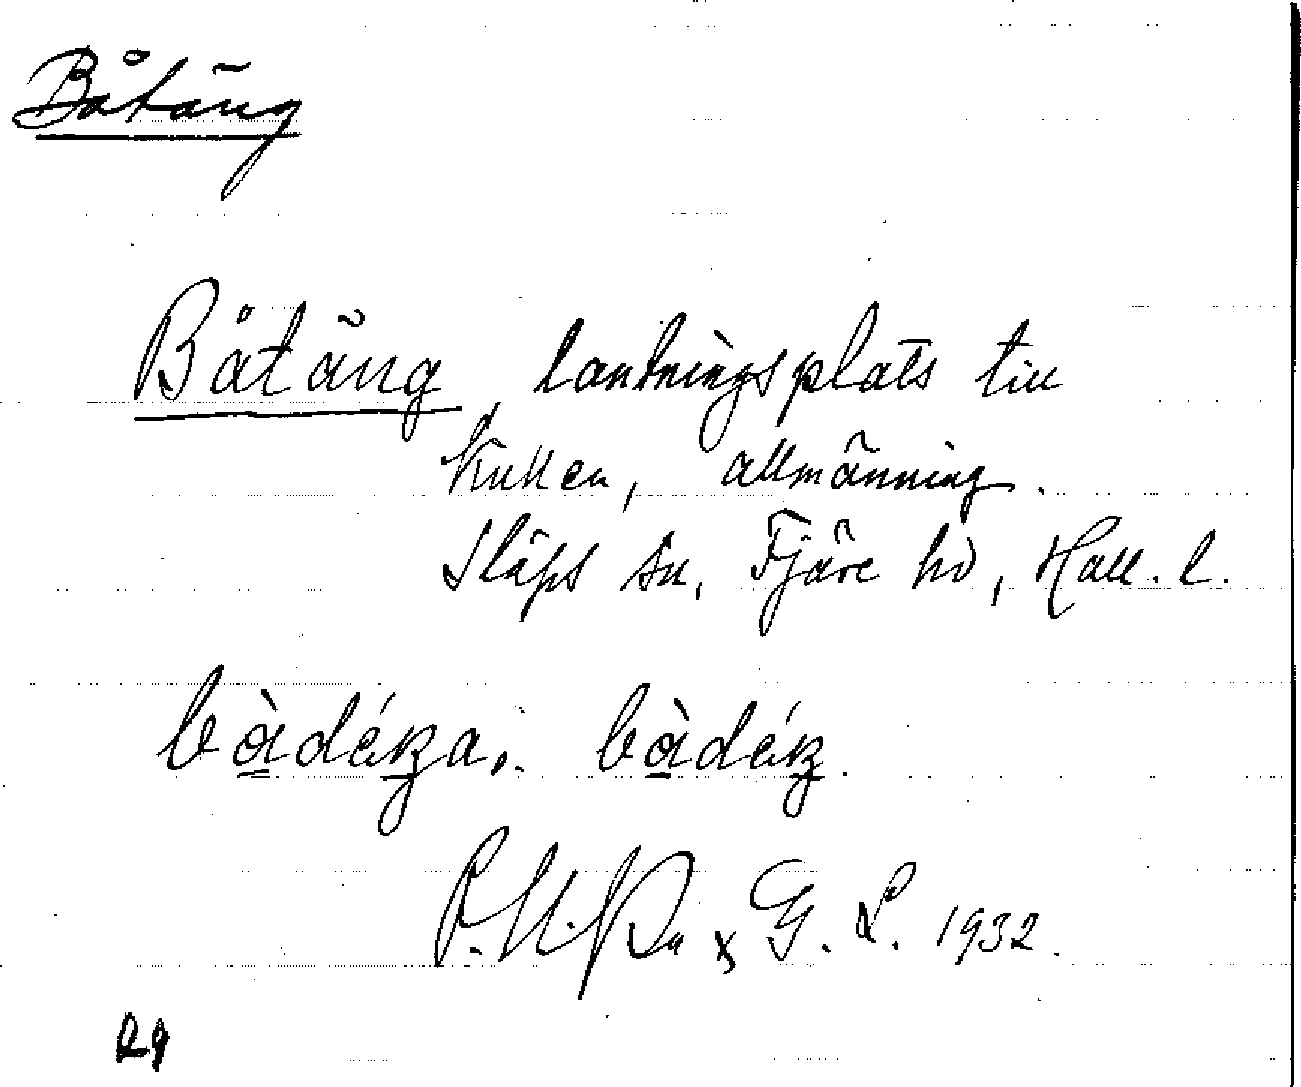 Båtäng
Båtäng, landningsplats till
Kullen, allmänning.
Släps sn, Fjäre hd, Hall. l.
bàdéŋa. bàdéŋ.
& G. L. 1932.